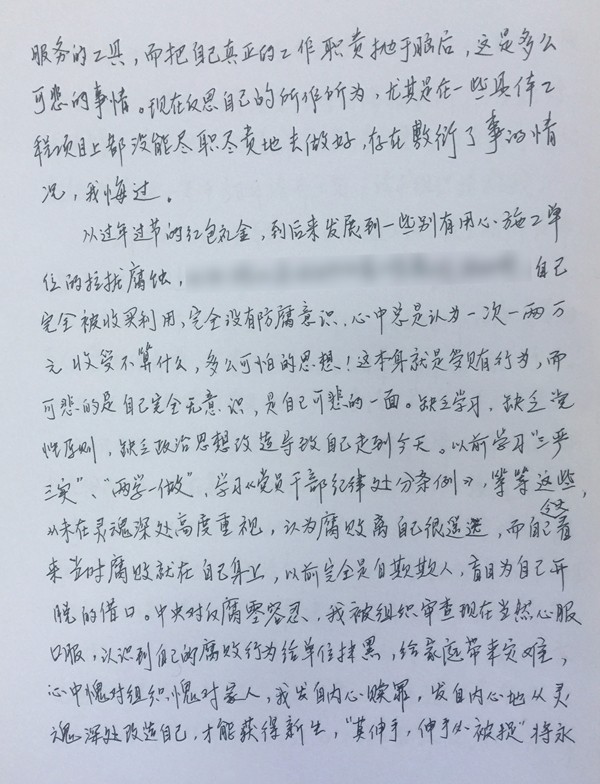 服务的工具，而把自己真正的工作职责抛于脑后，这是多么
可悲的事情。现在反思自己的所作所为，尤其是在一些具体工
程项目上都没能尽职尽责地去做好，存在敷衍了事的情
况，我悔过。
从过年过节的红包礼金，到后来发展到一些别有用心施工单
位的拉拢腐蚀，自己
完全被收买利用，完全没有防腐意识，心中总是认为一次一两万
元收受不算什么，多么可怕的思想！这本身就是受贿行为，而
可悲的是自己完全无意识，是自己可悲的一面。缺乏学习，缺乏党
性原则，缺乏政治思想改造导致自己走到今天。以前学习“三严
三实”、“两学一做”，学习《党员干部纪律处分条例》，等等这些，
从未在灵魂深处高度重视，认为腐败离自己很遥远，而自己今天看
来当时腐败就在自己身上，以前完全是自欺欺人，盲目为自己开
脱的借口。中央对反腐零容忍，我被组织审查现在当然心服
口服，认识到自己的腐败行为给单位抹黑，给家庭带来灾难，
心中愧对组织愧对家人，我发自内心赎罪，发自内心地从灵
魂深处改造自己，才能获得新生，“莫伸手，伸手必被捉”将永